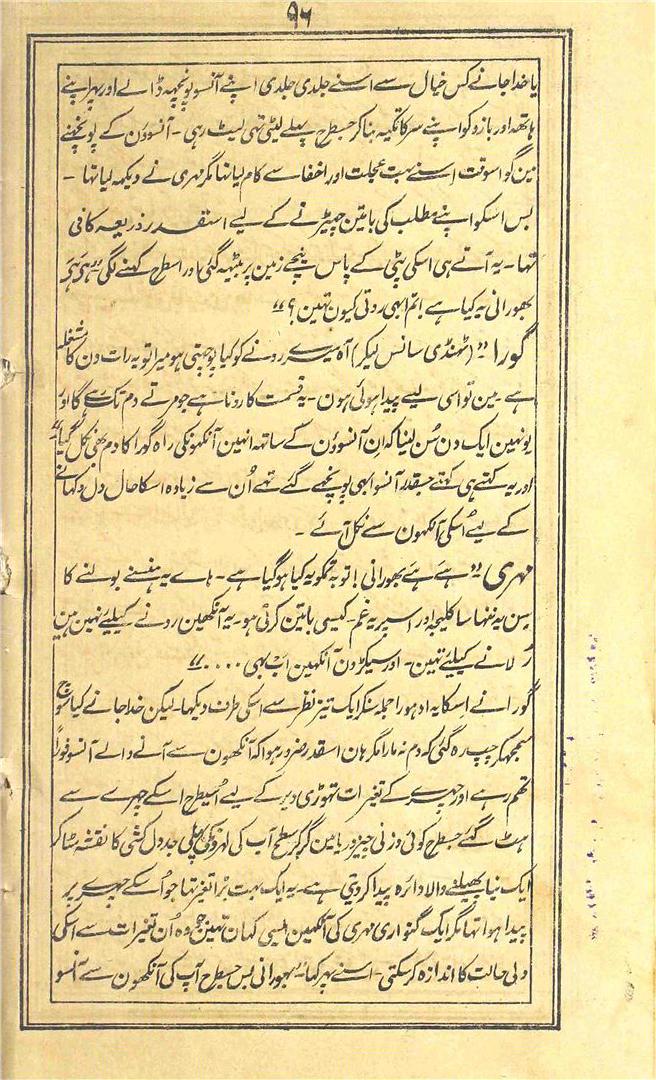 ۹۶
یا خدا جانے کس خیال سے اسنے جلدی جلدی اپنے آنسو پونچہہ ڈالے اور پہر اپنے
ہاتھہ اور بازو کو اپنے سر کا تکیہ بنا کر جسطرح پہلے لیٹی تہی لیٹ رہی - آنسوؤن کے پونچہنے
مین گو اسوقت اسنے بہت عجلت اور اخفا سے کام لیا تہا مگر مہری نے دیکہہ لیا تہا -
بس اسکو اپنے مطلب کی باتین چہیڑنے کے لیے اسقدر ذریعہ کافی
تہا - یہ آتے ہی اسکی پٹی کے پاس نیچے زمین پر بیٹہہ گئی اور اسطرح کہنے لگی - "ہَی ہَی
بہورانی یہ کیا ہے! تم ابہی روتی کیون تہین؟"
گورا "(ٹہنڈی سانس لیکر) آہ میرے رونے کو کیا پوچہتی ہو میرا تو یہ رات دن کا مشغلہ
ہے - مین تو اسی لیے پیدا ہوئی ہون - یہ قسمت کا رونا ہے جو مرتے دم تک رہے گا اور
یونہین ایک دن سُن لینا کہ ان آنسوؤن کے ساتہہ انہین آنکہونکی راہ گورا کا دم بھی نکل گیا"
اور یہ کہتے ہی کہتے جسقدر آنسو ابہی پونچھے گئے تہے اُن سے زیادہ اسکا حال دل دکہانے
کے لیے اُسکی آنکہون سے نکل آئے -
مہری "ہَے ہَے بہورانی! توبہ تمکو یہ کیا ہو گیا ہے - ہاے یہ ہنسنے بولنے کا
سِن یہ ننہا سا کلیجہ اور اسپر یہ غم - کیسی باتین کرتی ہو - یہ آنکھین رونے کیلئے نہین ہین
رُلانے کیلئے تہین - اور سیکڑون آنکہین اب بہی ...."
گورا نے اسکا یہ ادہورا جملہ سنکر ایک تیز نظر سے اسکی طرف دیکہا - لیکن خدا جانے کیا سوچ
سمجہکر چپ رہ گئی کہ دم نہ مارا مگر ہان اسقدر ضرور ہوا کہ آنکہون سے آنے والے آنسو فوراً
تھم رہے اور چہرے کے تغیرات تہوڑی دیر کے لیے اُسیطرح اسکے چہرے سے
ہٹ گئے جسطرح کوئی وزنی چیز دریا مین گر کر سطح آب کی لہرونکی پہلی جدول کشی کا نقشہ مٹا کر
ایک نیا پھیلنے والا دائرہ پیدا کر دیتی ہے - یہ ایک بہت بڑا تغیر تہا جو اُسکے چہرے پر
پیدا ہوا تہا مگر ایک گنواری مہری کی آنکہین ایسی کہان تہین جو وہ اُن تغیرات سے اسکی
دلی حالت کا اندازہ کر سکتی - اسنے پہر کہا "بہورانی بس جسطرح آپ کی آنکھون سے آنسو